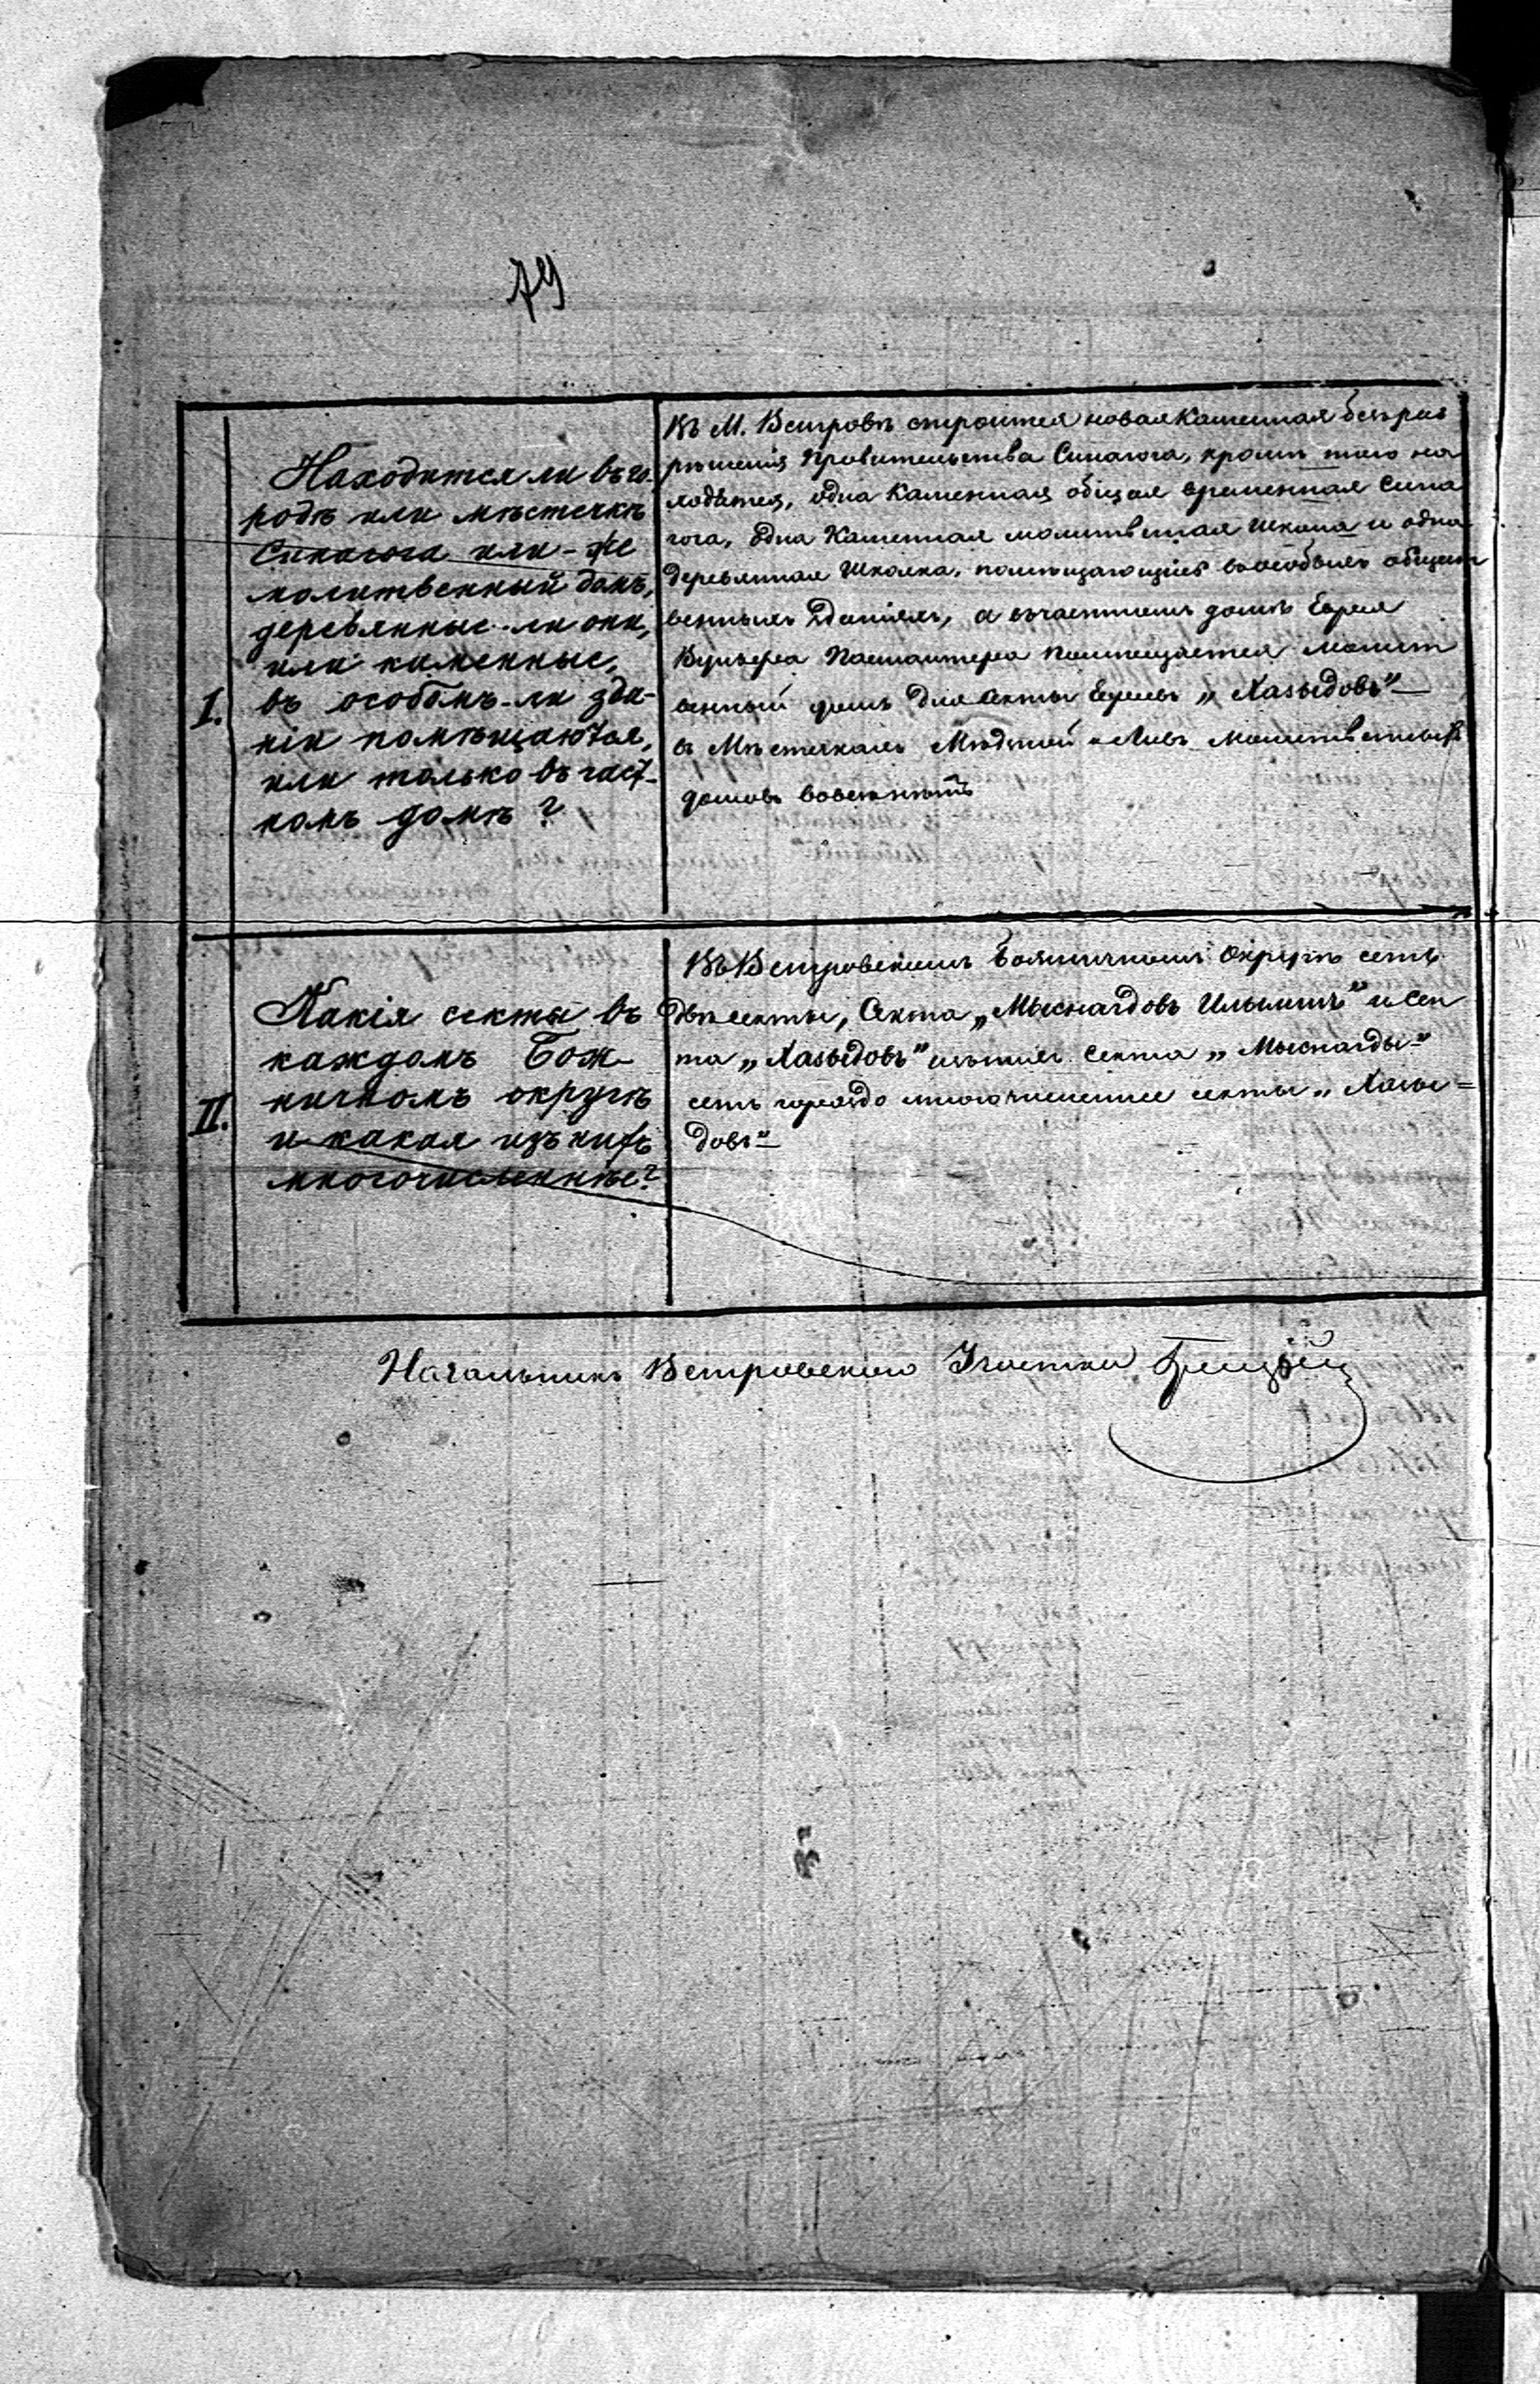 79
I.
Находится ли въ го-
родѣ или мѣстечкѣ
Синагога или-же
молитвенный домъ,
деревянные-ли они,
или каменные,
въ особомъ-ли зда-
ніи помѣщаются,
или только въ част-
номъ домѣ?
Въ М. Вепровѣ строится новая Каменная безъ раз
рѣшенія Правительства Синагога, кромѣ того на
ходятся, одна Каменная общая временная Сина
гога, одна Каменная молитвенная школа и одна
деревянная школка, помѣщающіеся въ особыхъ общест
венныхъ зданіяхъ, а въ частномъ домѣ Еврея
помѣщается молит
венный домъ для секты Евреевъ „Хазыдовъ“
въ Мѣстечкахъ и Ливъ молитвенныхъ
домовъ вовсе нѣтъ
II.
Какія секты въ
каждомъ Бож-
ничномъ округѣ
и какая изъ нихъ
многочисленнѣе?
Въ Венгровскомъ Божничномъ Округѣ есть
двѣ секты, Секта „Мыснагдовъ и сек
та „Хазыдовъ“ изъ нихъ секта „Мыснагды“
есть гораздо многочисленнее секты „Хазы=
довъ“
Начальникъ Венгровскаго Участка